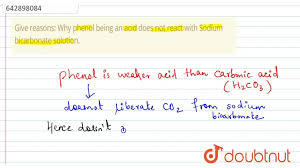 642898084
Give reasons: Why phenol being an acid does not react with Sodium
bicarbonate solution.
phenol is weaker acid than carbonic acid
(H2CO3)
↓
doesnot liberate CO2 from sodium
bicarbonate
Hence doesn't
doubtnut